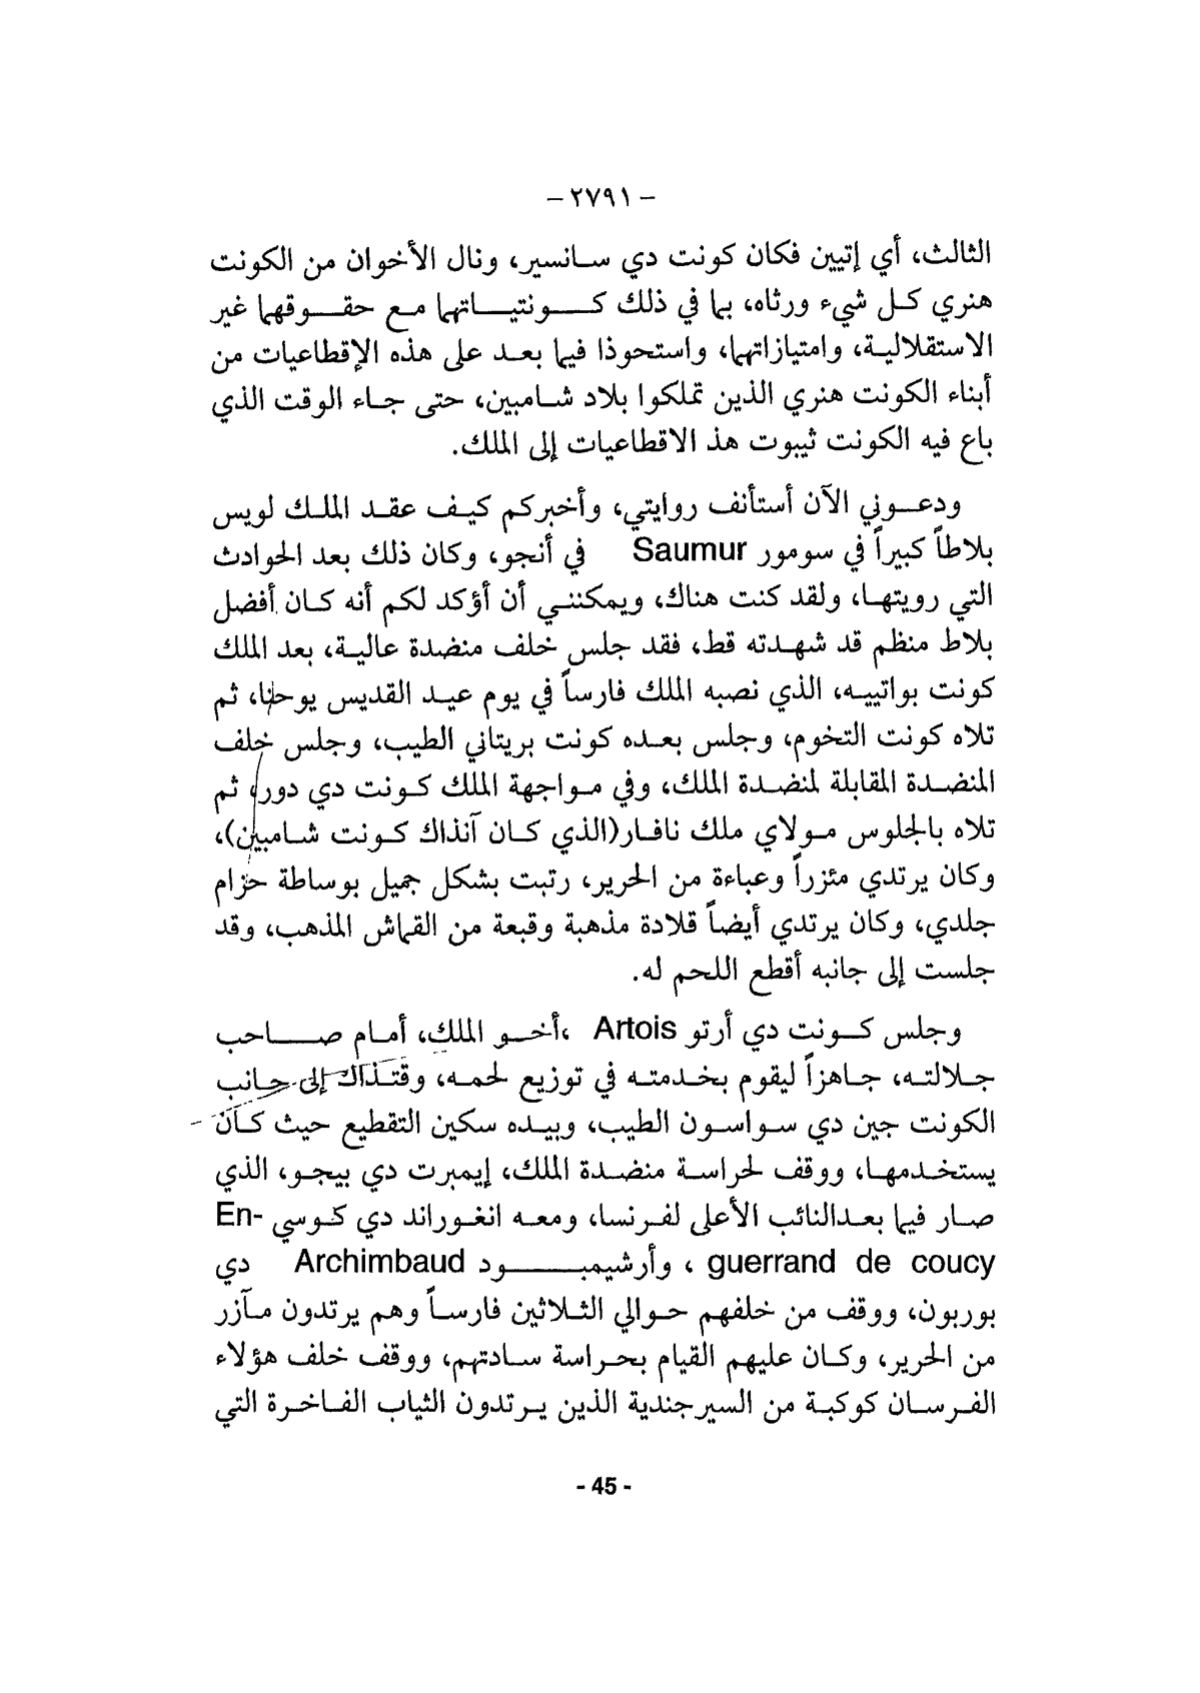 – ٢٧٩١ –
الثالث، أي إتيين فكان كونت دي سانسير، ونال الأخوان من الكونت
هنري كل شيء ورثاه، بما في ذلك كونتياتهما مع حقوقهما غير
الاستقلالية، وامتيازاتهما، واستحوذا فيما بعد على هذه الإقطاعيات من
أبناء الكونت هنري الذين تملكوا بلاد شامبين، حتى جاء الوقت الذي
باع فيه الكونت ثيبوت هذ الاقطاعيات إلى الملك.
ودعوني الآن أستأنف روايتي، وأخبركم كيف عقد الملك لويس
بلاطاً كبيراً في سومور Saumur في أنجو، وكان ذلك بعد الحوادث
التي رويتها، ولقد كنت هناك، ويمكنني أن أؤكد لكم أنه كان أفضل
بلاط منظم قد شهدته قط، فقد جلس خلف منضدة عالية، بعد الملك
كونت بواتييه، الذي نصبه الملك فارساً في يوم عيد القديس يوحنا، ثم
تلاه كونت التخوم، وجلس بعده كونت بريتاني الطيب، وجلس خلف
المنضدة المقابلة لمنضدة الملك، وفي مواجهة الملك كونت دي دور، ثم
تلاه بالجلوس مولاي ملك نافار(الذي كان آنذاك كونت شامبين)،
وكان يرتدي مئزراً وعباءة من الحرير، رتبت بشكل جميل بوساطة حزام
جلدي، وكان يرتدي أيضاً قلادة مذهبة وقبعة من القماش المذهب، وقد
جلست إلى جانبه أقطع اللحم له.
وجلس كونت دي أرتو Artois ،أخو الملك، أمام صاحب
جلالته، جاهزاً ليقوم بخدمته في توزيع لحمه، وقتذاك إلى جانب
الكونت جين دي سواسون الطيب، وبيده سكين التقطيع حيث كان
يستخدمها، ووقف لحراسة منضدة الملك، إيمبرت دي بيجو، الذي
صار فيما بعدالنائب الأعلى لفرنسا، ومعه انغوراند دي كوسي En-
guerrand de coucy ، وأرشيمبود Archimbaud دي
بوربون، ووقف من خلفهم حوالي الثلاثين فارساً وهم يرتدون مآزر
من الحرير، وكان عليهم القيام بحراسة سادتهم، ووقف خلف هؤلاء
الفرسان كوكبة من السيرجندية الذين يرتدون الثياب الفاخرة التي
- 45 -